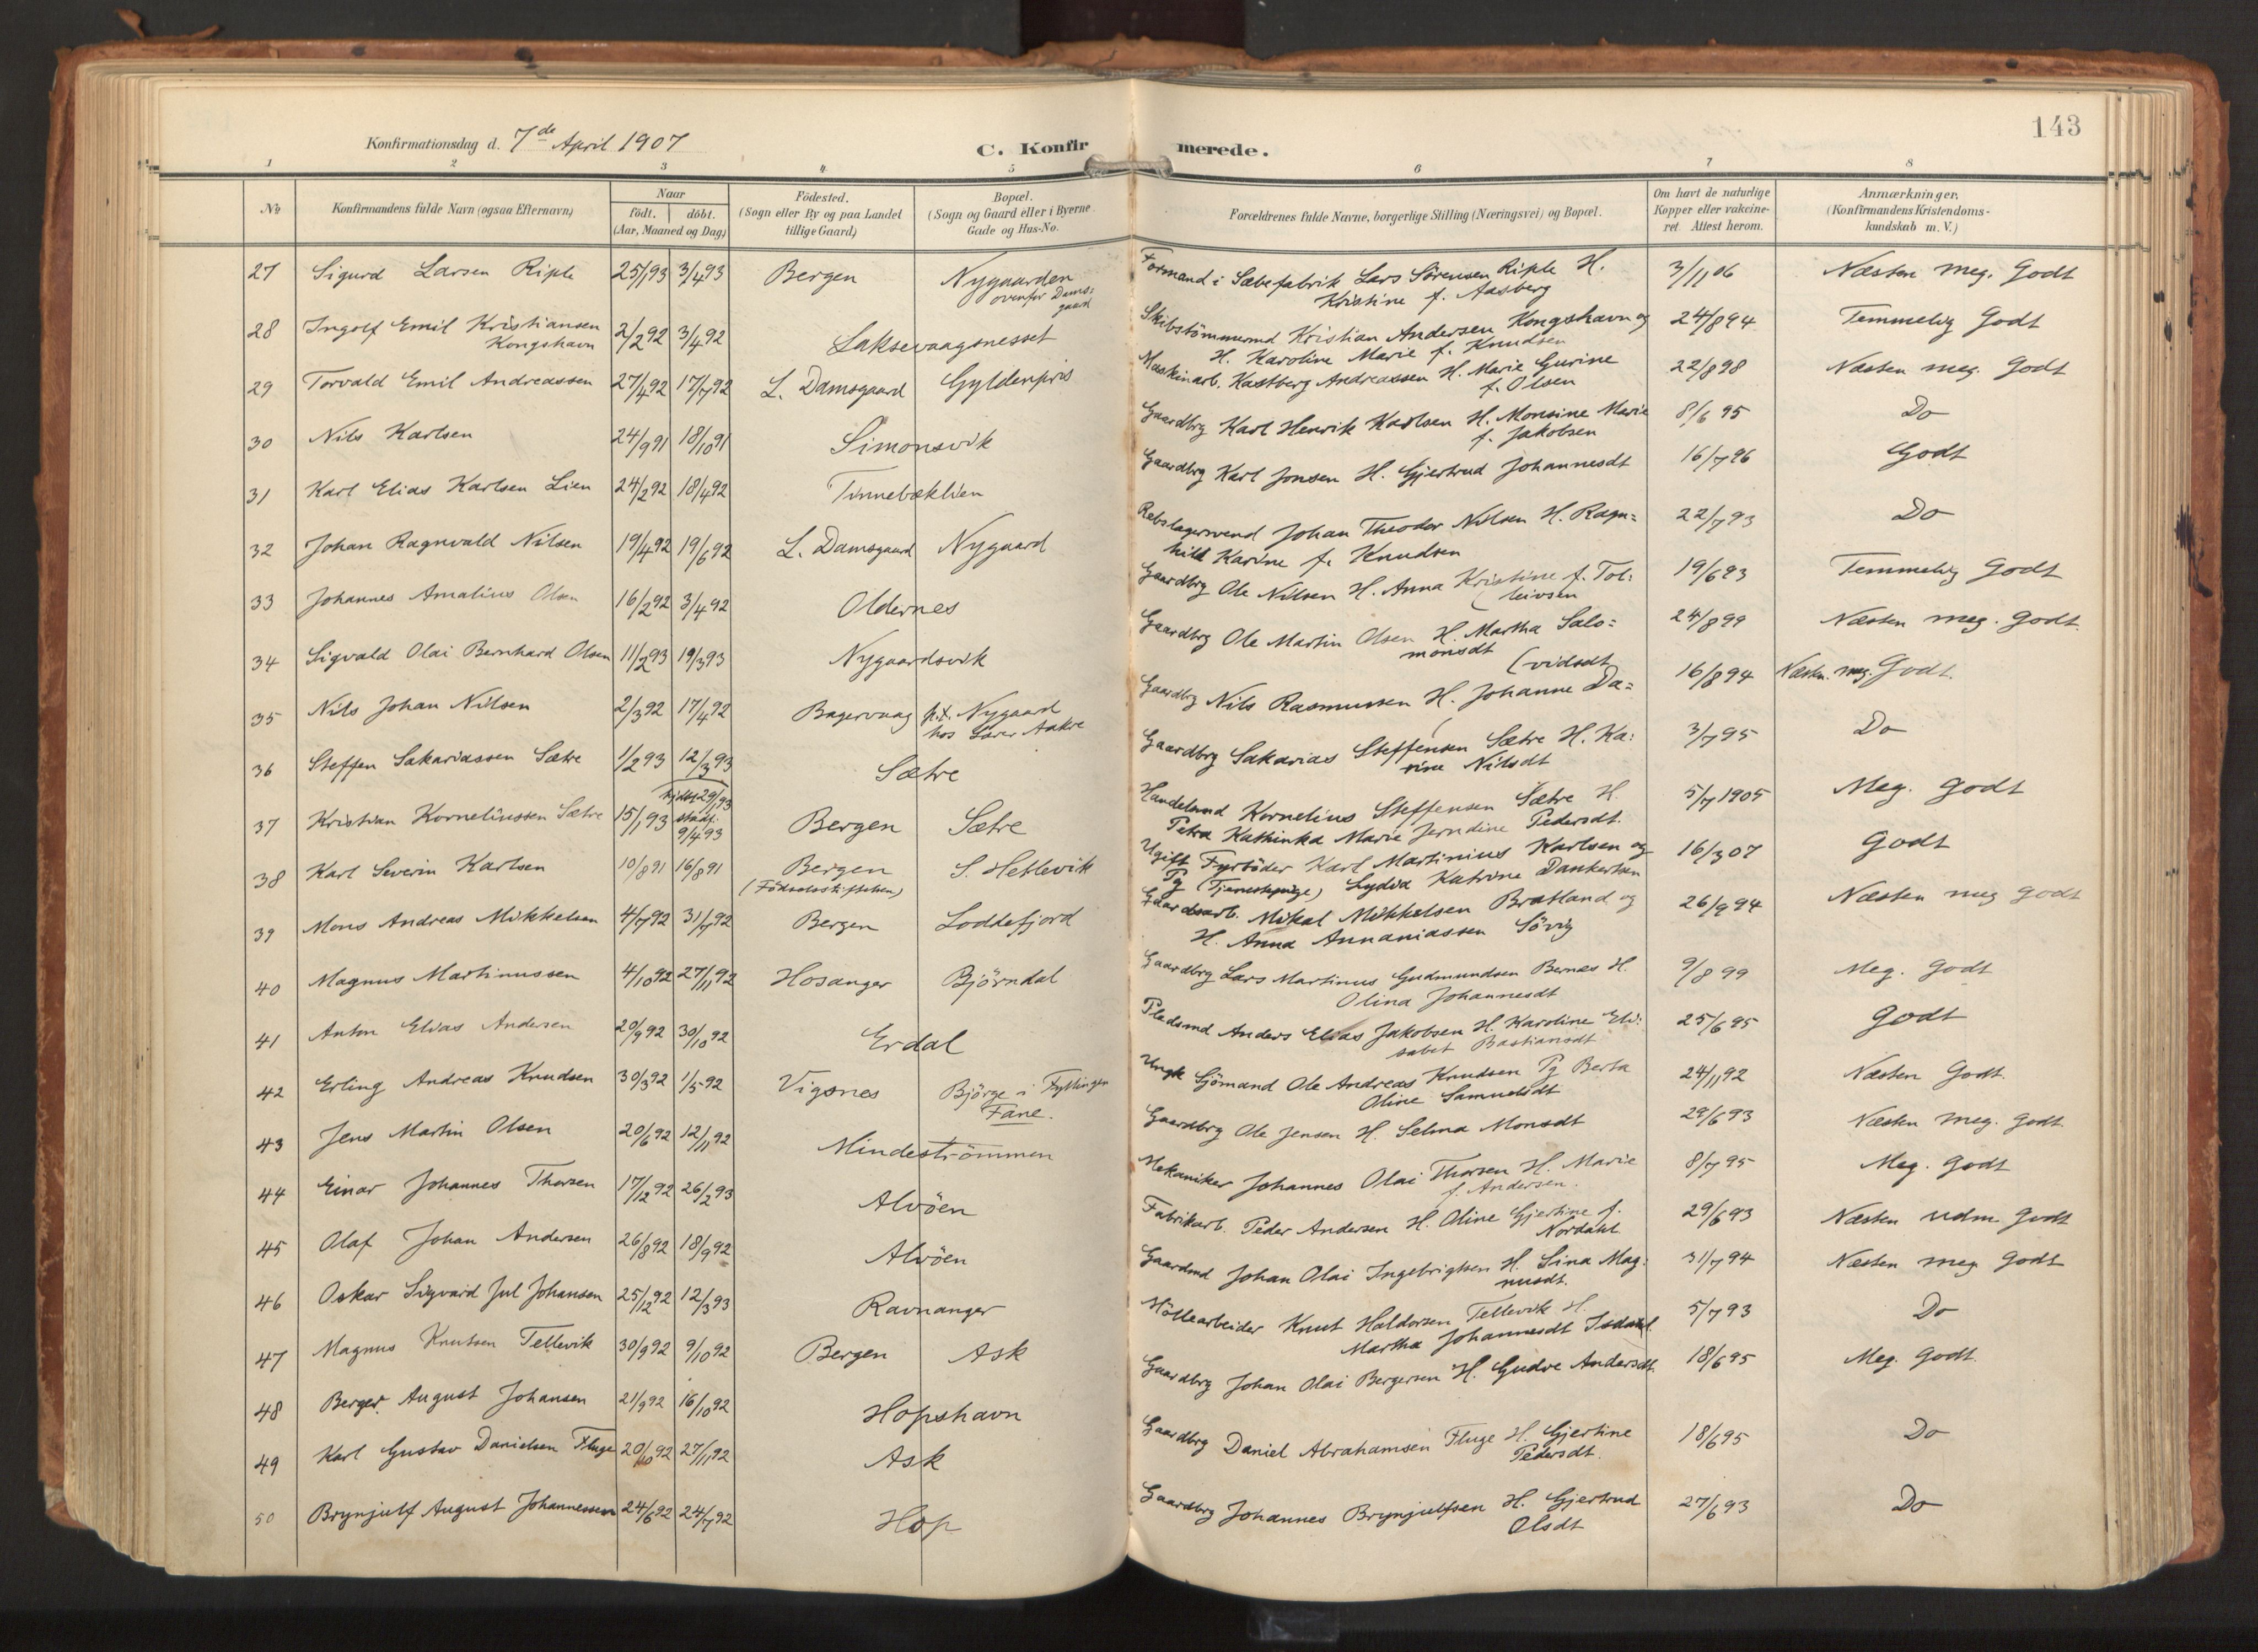 143
Konfirmationsdag d. 7de April 1907
C. Konfirmerede.
1 2 3 4 5 6 7 8
No
Konfirmandens fulde Navn (ogsaa Efternavn)
Naar
födt. döbt.
(Aar, Maaned og Dag)
Födested.
(Sogn eller By og paa Landet
tillige Gaard)
Bopæl.
(Sogn og Gaard eller i Byerne
Gade og Hus-No.
Forældrenes fulde Navne, borgerlige Stilling (Næringsvei) og Bopæl.
Om havt de naturlige
Kopper eller vakcine-
ret. Attest herom.
Anmærkninger.
(Konfirmandens Kristendoms-
kundskab m. V.)
27 Sigurd Larsen Riple 25/1 93 3/4 93 Bergen Nygaarden
ovenfor Dams=
gaard
Formand i Sæbefabrik Lars Sörensen Riple H.
Kristine f. Aasberg
3/11 06 Næsten meg. Godt
28 Ingolf Emil Kristiansen
Kongshavn
2/2 92 3/4 92 Laksevaagsnesset
Skibstömmermd Kristian Andersen Kongshavn og
H. Karoline Marie f. Knudsen
24/8 94 Temmelig Godt
29 Torvald Emil Andreassen 27/4 92 17/7 92 L. Damsgaard Gyldenpris
Maskinarb. Kastberg Andreassen H. Marie Gurine
f. Olsen
22/8 98 Næsten meg. Godt
30 Nils Karlsen 24/9 91 18/10 91 Simonsvik
Gaardbrg Karl Henrik Karlsen H. Monsine Marie
f. Jakobsen
8/6 95 Do
31 Karl Elias Karlsen Lien 24/2 92 18/4 92 Tinnebæklien
Gaardbrg Karl Jonsen H. Gjertrud Johannesdt
16/7 96 Godt
32 Johan Ragnvald Nilsen 19/4 92 19/6 92 L. Damsgaard Nygaard
Rebslagersvend Johan Theodor Nilsen H. Ragn=
hild Karine f. Knudsen
22/7 93 Do
33 Johannes Amalius Olsen 16/2 92 3/4 92 Oldernes
Gaardbrg Ole Nilsen H. Anna Kristine f. Tol:
(leivsen
19/6 93 Temmelig Godt
34 Sigvald Olai Bernhard Olsen 11/2 93 19/3 93 Nygaardsvik
Gaardbrg Ole Martin Olsen H. Martha Salo=
monsdt
24/8 99 Næsten meg. Godt.
35 Nils Johan Nilsen 2/3 92 17/4 92 Bagervaag p.t. Nygaard
hos Lærer Aakre
(vidsdt
Gaardbrg Nils Rasmussen H. Johanne Da=
16/8 94 Næstn. meg. Godt.
36 Steffen Sakariassen Sætre 1/2 93 12/3 93 Sætre
Gaardbrg Sakarias Steffensen Sætre H. Ka:
rine Nilsdt
3/7 95 Do
37 Kristian Korneliussen Sætre 15/1 93 hjdbt 29/1 93
stadf.
9/4 93
Bergen Sætre
Handelsmd Kornelius Steffensen Sætre H.
Petra Kathinka Marie Jerndine Pedersdt.
5/7 1905 Meg. Godt
38 Karl Severin Karlsen 10/8 91 16/8 91 Bergen
(Födselsstiftelsen)
S. Hetlevik
Ugift Fyrböder Karl Martinius Karlsen og
Pg (Tjenestepige) Lydia Katrine Dankertsen
16/3 07 Godt
39 Mons Andreas Mikkelsen 4/7 92 31/7 92 Bergen Loddefjord
Gaardsarb. Mikal Mikkelsen Bratland og
H. Anna Annaniassen Sörvig
26/9 94 Næsten meg Godt
40 Magnus Martinussen 4/10 92 27/11 92 Hosanger Björndal
Gaardbrg Lars Martinus Gudmundsen Bernes H.
Olina Johannesdt
9/8 99 Meg. Godt
41 Anton Elias Andersen 20/9 92 30/10 92 Erdal
Pladsmd Anders Elias Jakobsen H. Karoline Eli:
sabet Bastiansdt
25/6 95 Godt
42 Erling Andreas Knudsen 30/3 92 1/5 92 Vigsnes Björge i Fyllingen
Fane.
Ungk Sjömand Ole Andreas Knudsen Pg Berta
Oline Samuelsdt
24/11 92 Næsten Godt
43 Jens Martin Olsen 20/6 92 12/11 92 Mindeströmmen
Gaardbrg Ole Jensen H. Selma Monsdt
29/6 93 Næsten meg. Godt
44 Einar Johannes Thorsen 17/12 92 26/2 93 Alvöen
Mekaniker Johannes Olai Thorsen H. Marie
f. Andersen.
8/7 95 Meg. Godt
45 Olaf Johan Andersen 26/8 92 18/9 92 Alvöen
Fabrikarb. Peder Andersen H. Oline Gjertine f.
Nordahl
29/6 93 Næsten udm. Godt
46 Oskar Sigvard Jul Johansen 25/12 92 12/3 93 Ravnanger
Gaardmd Johan Olai Ingebrigtsen H. Sina Mag:
nusdt.
31/7 94 Næsten meg Godt
47 Magnus Knutsen Tellevik 30/9 92 9/10 92 Bergen Ask
Möllearbeider Knut Haldorsen Tellevik H.
Martha Johannesdt Isdahl.
5/7 93 Do
48 Berger August Johansen 21/9 92 16/10 92 Hopshavn
Gaardbrg Johan Olai Bergersen H. Gudve Andersdt.
18/6 95 Meg. Godt.
49 Karl Gustav Danielsen Fluge 20/10 92 27/11 92 Ask
Gaardbrg Daniel Abrahamsen Fluge H. Gjertine
Pedersdt.
18/6 95 Do
50 Brynjulf August Johannessen 24/6 92 24/7 92 Hop
Gaardbrg Johannes Brynjulfsen H. Gjertrud
Olsdt
27/6 93 Do